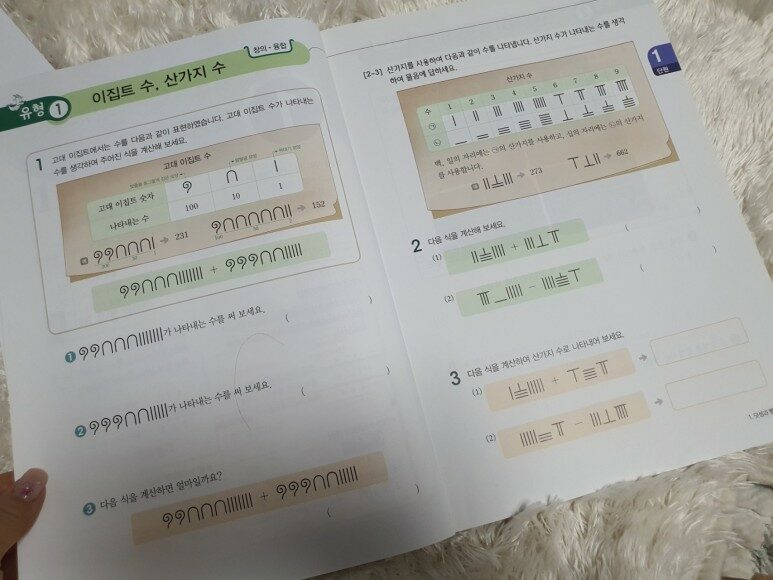 유형 1
이집트 수, 산가지 수
창의·융합
1 고대 이집트에서는 수를 다음과 같이 표현하였습니다. 고대 이집트 수가 나타내는
수를 생각하여 주어진 식을 계산해 보세요.
고대 이집트 수
고대 이집트 숫자
나타내는 수 100 10 1
예 → 231 → 152
+
1 가 나타내는 수를 써 보세요. ( )
2 가 나타내는 수를 써 보세요. ( )
3 다음 식을 계산하면 얼마일까요?
+
( )
1
단원
[2~3] 산가지를 사용하여 다음과 같이 수를 나타냅니다. 산가지 수가 나타내는 수를 생각
하여 물음에 답하세요.
산가지 수
수 1 2 3 4 5 6 7 8 9
㉠
㉡
백, 일의 자리에는 ㉠의 산가지를 사용하고, 십의 자리에는 ㉡의 산가지
를 사용합니다.
예 → 273 → 662
2 다음 식을 계산해 보세요.
(1) + ( )
(2) - ( )
3 다음 식을 계산하여 산가지 수로 나타내어 보세요.
(1) + →
(2) - →